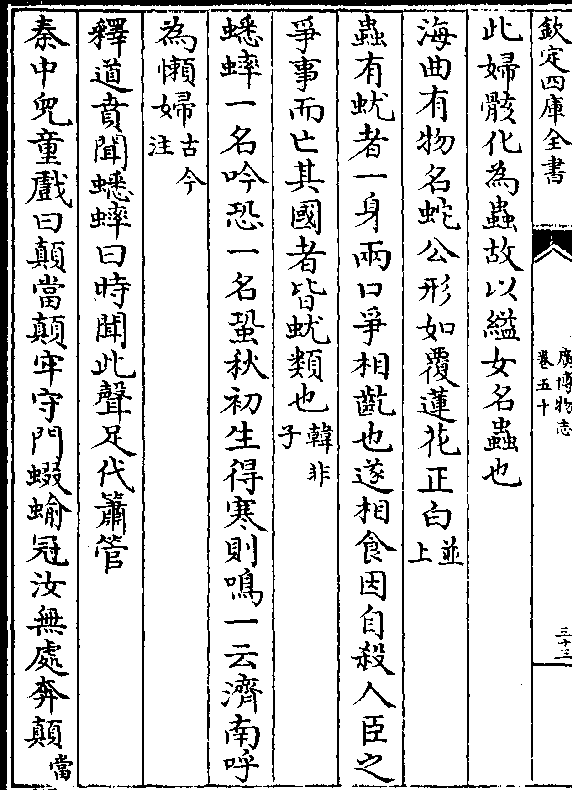 欽定四庫全書
廣博物志
卷五十
三十三
此婦骸化為蟲故以縊女名蟲也
海曲有物名蛇公形如覆蓮花正白並上
蟲有蚘者一身兩口爭相齕也遂相食因自殺人臣之
爭事而亡其國者皆蚘類也韓非子
蟋蟀一名吟恐一名蛩秋初生得寒則鳴一云濟南呼
為懶婦古今注
釋道賁聞蟋蟀曰時聞此聲足代簫管
秦中兒童戲曰顛當顛牢守門蠮螉冠汝無處奔顛當